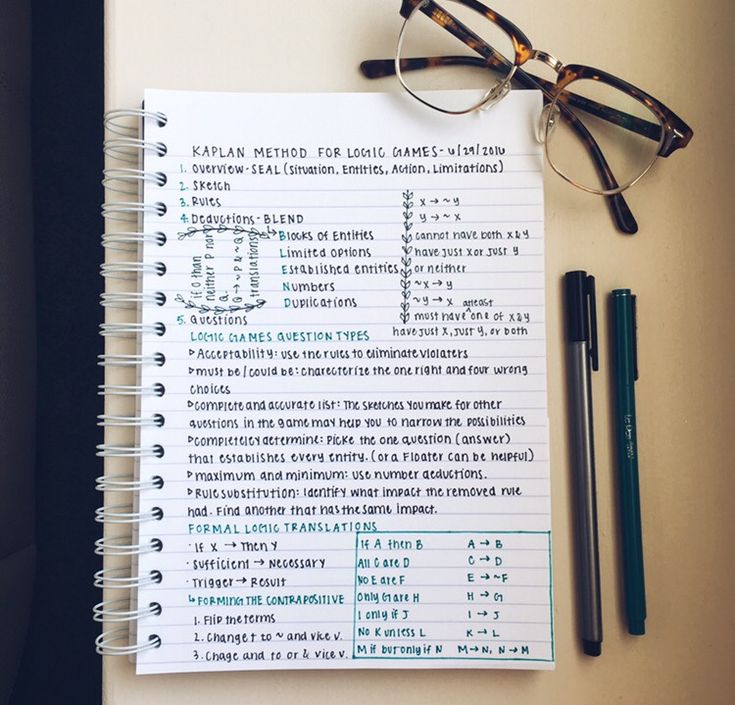 KAPLAN METHOD FOR LOGIC GAMES - 6/29/2016
1. Overview - SEAL (Situation, Entities, Action, Limitations)
2. Sketch
3. Rules
4. Deductions - BLEND
Blocks of Entities
Limited options
Established entities
Numbers
Duplications
if O than
neither P nor
Q.
O → ~P & ~Q
translations
x → ~y
y → ~x
cannot have both x & y
have just x or just y
or neither
~x → y
~y → x
must have atleast one of x & y
have just x, just y, or both
5. Questions
LOGIC GAMES QUESTION TYPES
▹ Acceptability: use the rules to eliminate violaters
▹ must be / could be: charecterize the one right and four wrong
choices
▹ complete and accurate list: The sketches you make for other
questions in the game may help you to narrow the possibilities
▹ completeley determine: Picke the one question (answer)
that establishes every entity. (or a Floater can be helpful)
▹ maximum and minimum: use number deductions.
▹ Rule substitution: Identify what impact the removed rule
had. Find another that has the same impact.
FORMAL LOGIC TRANSLATIONS
· If X → Then Y
· Sufficient → Necessary
· Trigger → Result
↳ FORMING THE CONTRAPOSITIVE
1. Flip the terms
2. Change t to ~ and vice v.
3. Chage and to or & vice v.
If A then B A → B
All C are D C → D
No E are F E → ~F
Only G are H H → G
I only if J I → J
No K unless L K → L
M if but only if N M → N, N → M